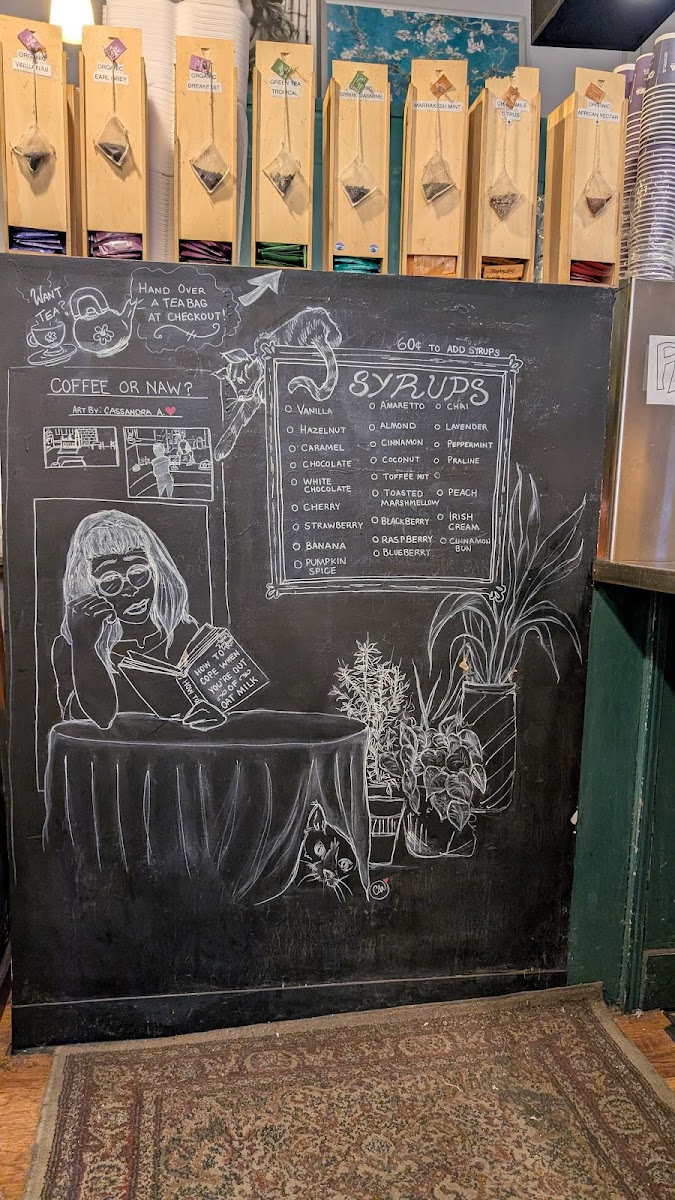 ORGANIC
VANILLA BEAN
ORGANIC
EARL GREY
ORGANIC
BREAKFAST
GREEN TEA
TROPICAL
ORGANIC
SPRING JASMINE
MARRAKESH MINT
CITRUS
ORGANIC
AFRICAN NECTAR
WANT
TEA?
HAND OVER
A TEABAG
AT CHECKOUT!
COFFEE OR NAW?
ART BY: CASSANDRA A.
60¢ TO ADD SYRUPS
SYRUPS
VANILLA
HAZELNUT
CARAMEL
CHOCOLATE
WHITE
CHOCOLATE
CHERRY
STRAWBERRY
BANANA
PUMPKIN
SPICE
AMARETTO
ALMOND
CINNAMON
COCONUT
TOFFEE NUT
TOASTED
MARSHMELLOW
BLACKBERRY
RASPBERRY
BLUEBERRY
CHAI
LAVENDER
PEPPERMINT
PRALINE
PEACH
IRISH
CREAM
CINNAMON
BUN
HOW TO
COPE WHEN
YOU'RE OUT
OF
OAT MILK